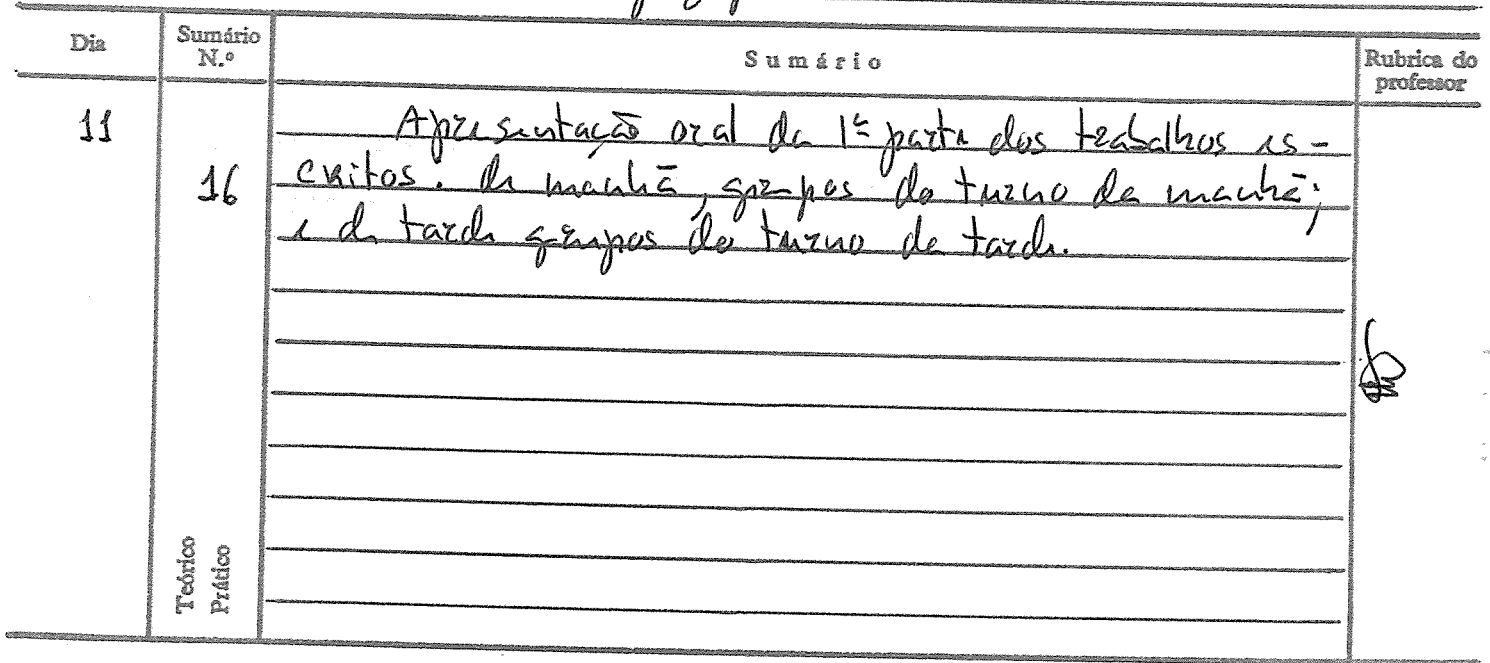 Dia
Sumário N.º
Sumário
Rubrica do professor
11
16
Apresentação oral da 1ª parte dos trabalhos es-
critos. De manhã, grupos do turno da manhã;
e de tarde grupos do turno da tarde.
Teórico
Prático